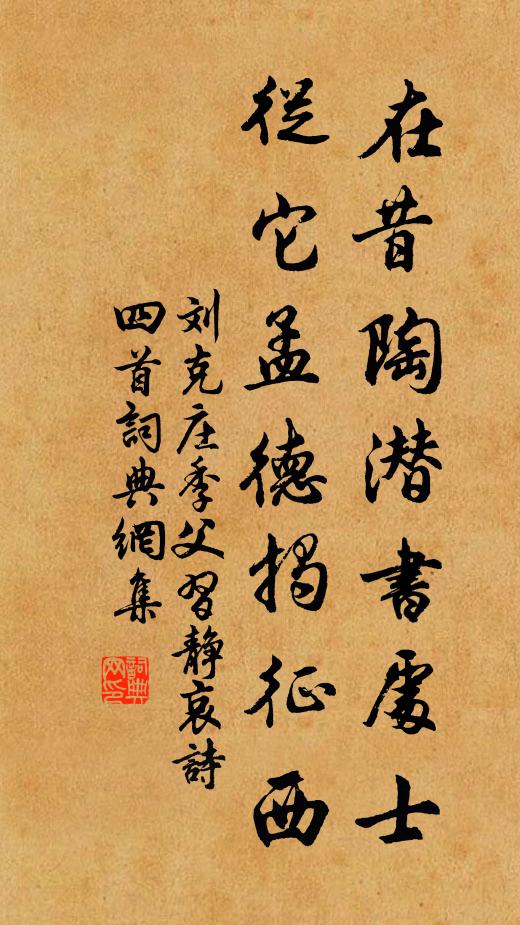 在昔陶潜書處士
從它孟德揭征西
刘克庄季父習静哀詩
四首詞典網集
詞典网印